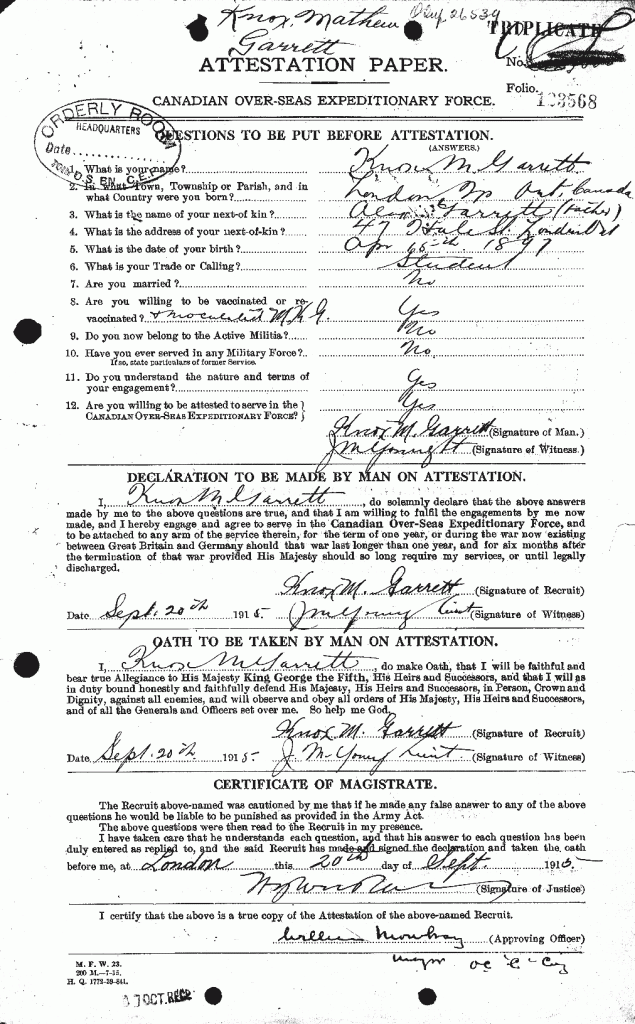 Knox, Mathew
Garrett
TRIPLICATE
No.
ATTESTATION PAPER.
Folio.
CANADIAN OVER-SEAS EXPEDITIONARY FORCE.
ORDERLY ROOM
HEADQUARTERS
Date
QUESTIONS TO BE PUT BEFORE ATTESTATION.
(ANSWERS.)
1. What is your name? Knox M. Garrett
2. In what Town, Township or Parish, and in
what Country were you born? London Ont. Canada
3. What is the name of your next-of kin? Garrett (Father)
4. What is the address of your next-of-kin? 47 St. London Ont
5. What is the date of your birth? Apr 1897
6. What is your Trade or Calling? Student
7. Are you married? No
8. Are you willing to be vaccinated or re-
vaccinated? & inoculated M.K.G. Yes
9. Do you now belong to the Active Militia? No
10. Have you ever served in any Military Force? No
If so, state particulars of former Service.
11. Do you understand the nature and terms of
your engagement? Yes
12. Are you willing to be attested to serve in the
CANADIAN OVER-SEAS EXPEDITIONARY FORCE? Yes
Knox M. Garrett (Signature of Man.)
J M Young Lt (Signature of Witness.)
DECLARATION TO BE MADE BY MAN ON ATTESTATION.
I, Knox M Garrett, do solemnly declare that the above answers
made by me to the above questions are true, and that I am willing to fulfil the engagements by me now
made, and I hereby engage and agree to serve in the Canadian Over-Seas Expeditionary Force, and
to be attached to any arm of the service therein, for the term of one year, or during the war now existing
between Great Britain and Germany should that war last longer than one year, and for six months after
the termination of that war provided His Majesty should so long require my services, or until legally
discharged.
Knox M. Garrett (Signature of Recruit)
Date Sept. 20th 1915. J M Young Lieut (Signature of Witness)
OATH TO BE TAKEN BY MAN ON ATTESTATION.
I, Knox M Garrett, do make Oath, that I will be faithful and
bear true Allegiance to His Majesty King George the Fifth, His Heirs and Successors, and that I will as
in duty bound honestly and faithfully defend His Majesty, His Heirs and Successors, in Person, Crown and
Dignity, against all enemies, and will observe and obey all orders of His Majesty, His Heirs and Successors,
and of all the Generals and Officers set over me. So help me God.
Knox M. Garrett (Signature of Recruit)
Date Sept. 20th 1915. J M Young Lieut (Signature of Witness)
CERTIFICATE OF MAGISTRATE.
The Recruit above-named was cautioned by me that if he made any false answer to any of the above
questions he would be liable to be punished as provided in the Army Act.
The above questions were then read to the Recruit in my presence.
I have taken care that he understands each question, and that his answer to each question has been
duly entered as replied to, and the said Recruit has made and signed the declaration and taken the oath
before me, at London this 20th day of Sept. 1915
(Signature of Justice)
I certify that the above is a true copy of the Attestation of the above-named Recruit.
William Mowbray (Approving Officer)
Major OC "C" Coy
M. F. W. 23.
200 M.—7-15.
H. Q. 1772-39-841.